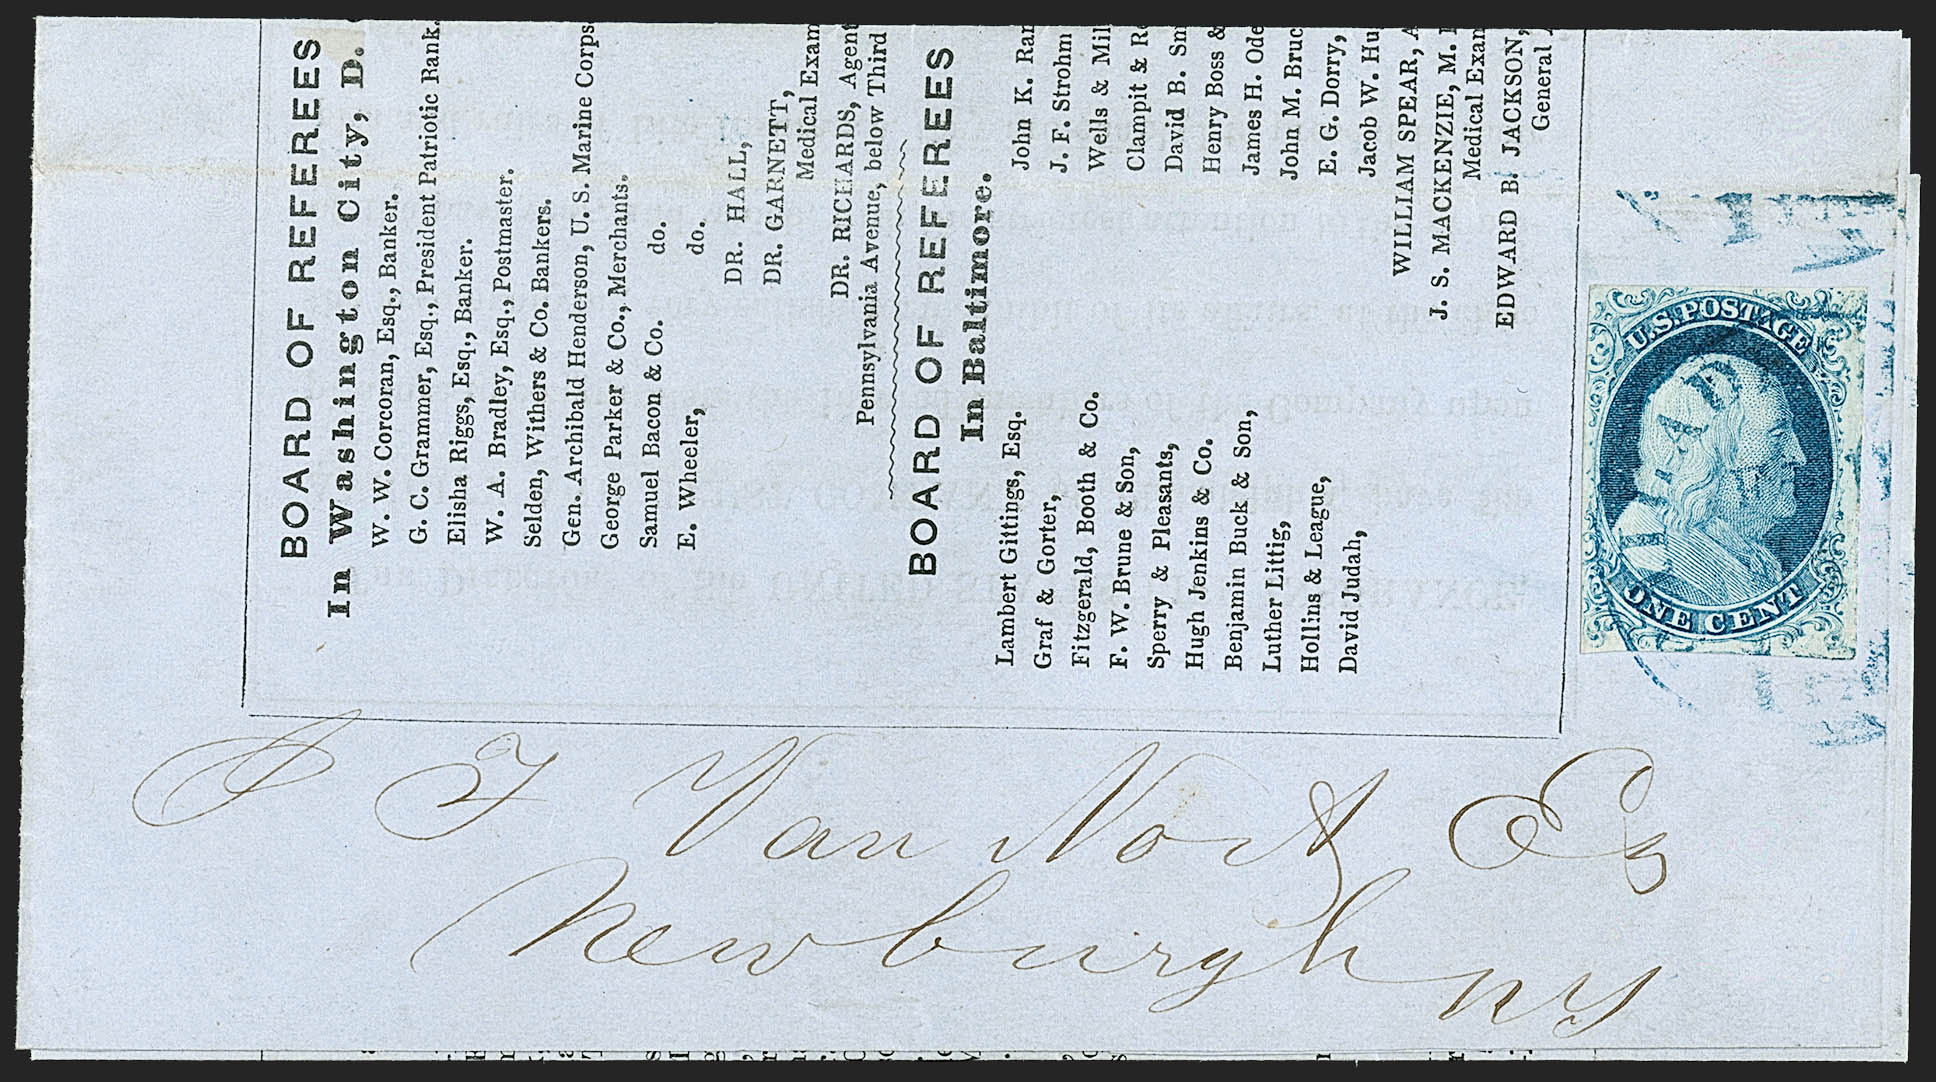 BOARD OF REFEREES
In Washington City, D.
W. W. Corcoran, Esq., Banker.
G. C. Grammer, Esq., President Patriotic Bank.
Elisha Riggs, Esq., Banker.
W. A. Bradley, Esq., Postmaster.
Selden, Withers & Co. Bankers.
Gen. Archibald Henderson, U. S. Marine Corps
George Parker & Co., Merchants.
Samuel Bacon & Co. do.
E. Wheeler, do.
DR. HALL,
DR. GARNETT,
Medical Exam
DR. RICHARDS, Agent
Pennsylvania Avenue, below Third
BOARD OF REFEREES
In Baltimore.
Lambert Gittings, Esq.
Graf & Gorter,
Fitzgerald, Booth & Co.
F. W. Brune & Son,
Sperry & Pleasants,
Hugh Jenkins & Co.
Benjamin Buck & Son,
Luther Littig,
Hollins & League,
David Judah,
John K. Ran
J. F. Strohm
Wells & Mil
Clampit & R
David B. Sm
Henry Boss &
James H. Ode
John M. Bruc
E. G. Dorry,
Jacob W. Hu
WILLIAM SPEAR, A
J. S. MACKENZIE, M.
Medical Exan
EDWARD B. JACKSON,
General
U.S. POSTAGE
ONE CENT
PAID
S T Van Nort Esq
Newburgh
NY